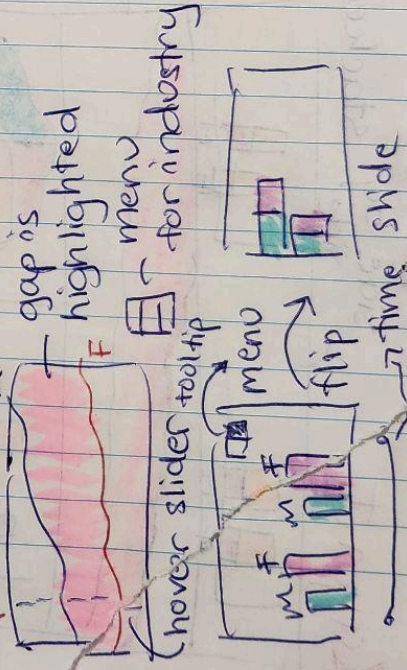 gap is
highlighted
F
menu
for industry
hover slider tooltip
menu
flip
M F M F
time slide